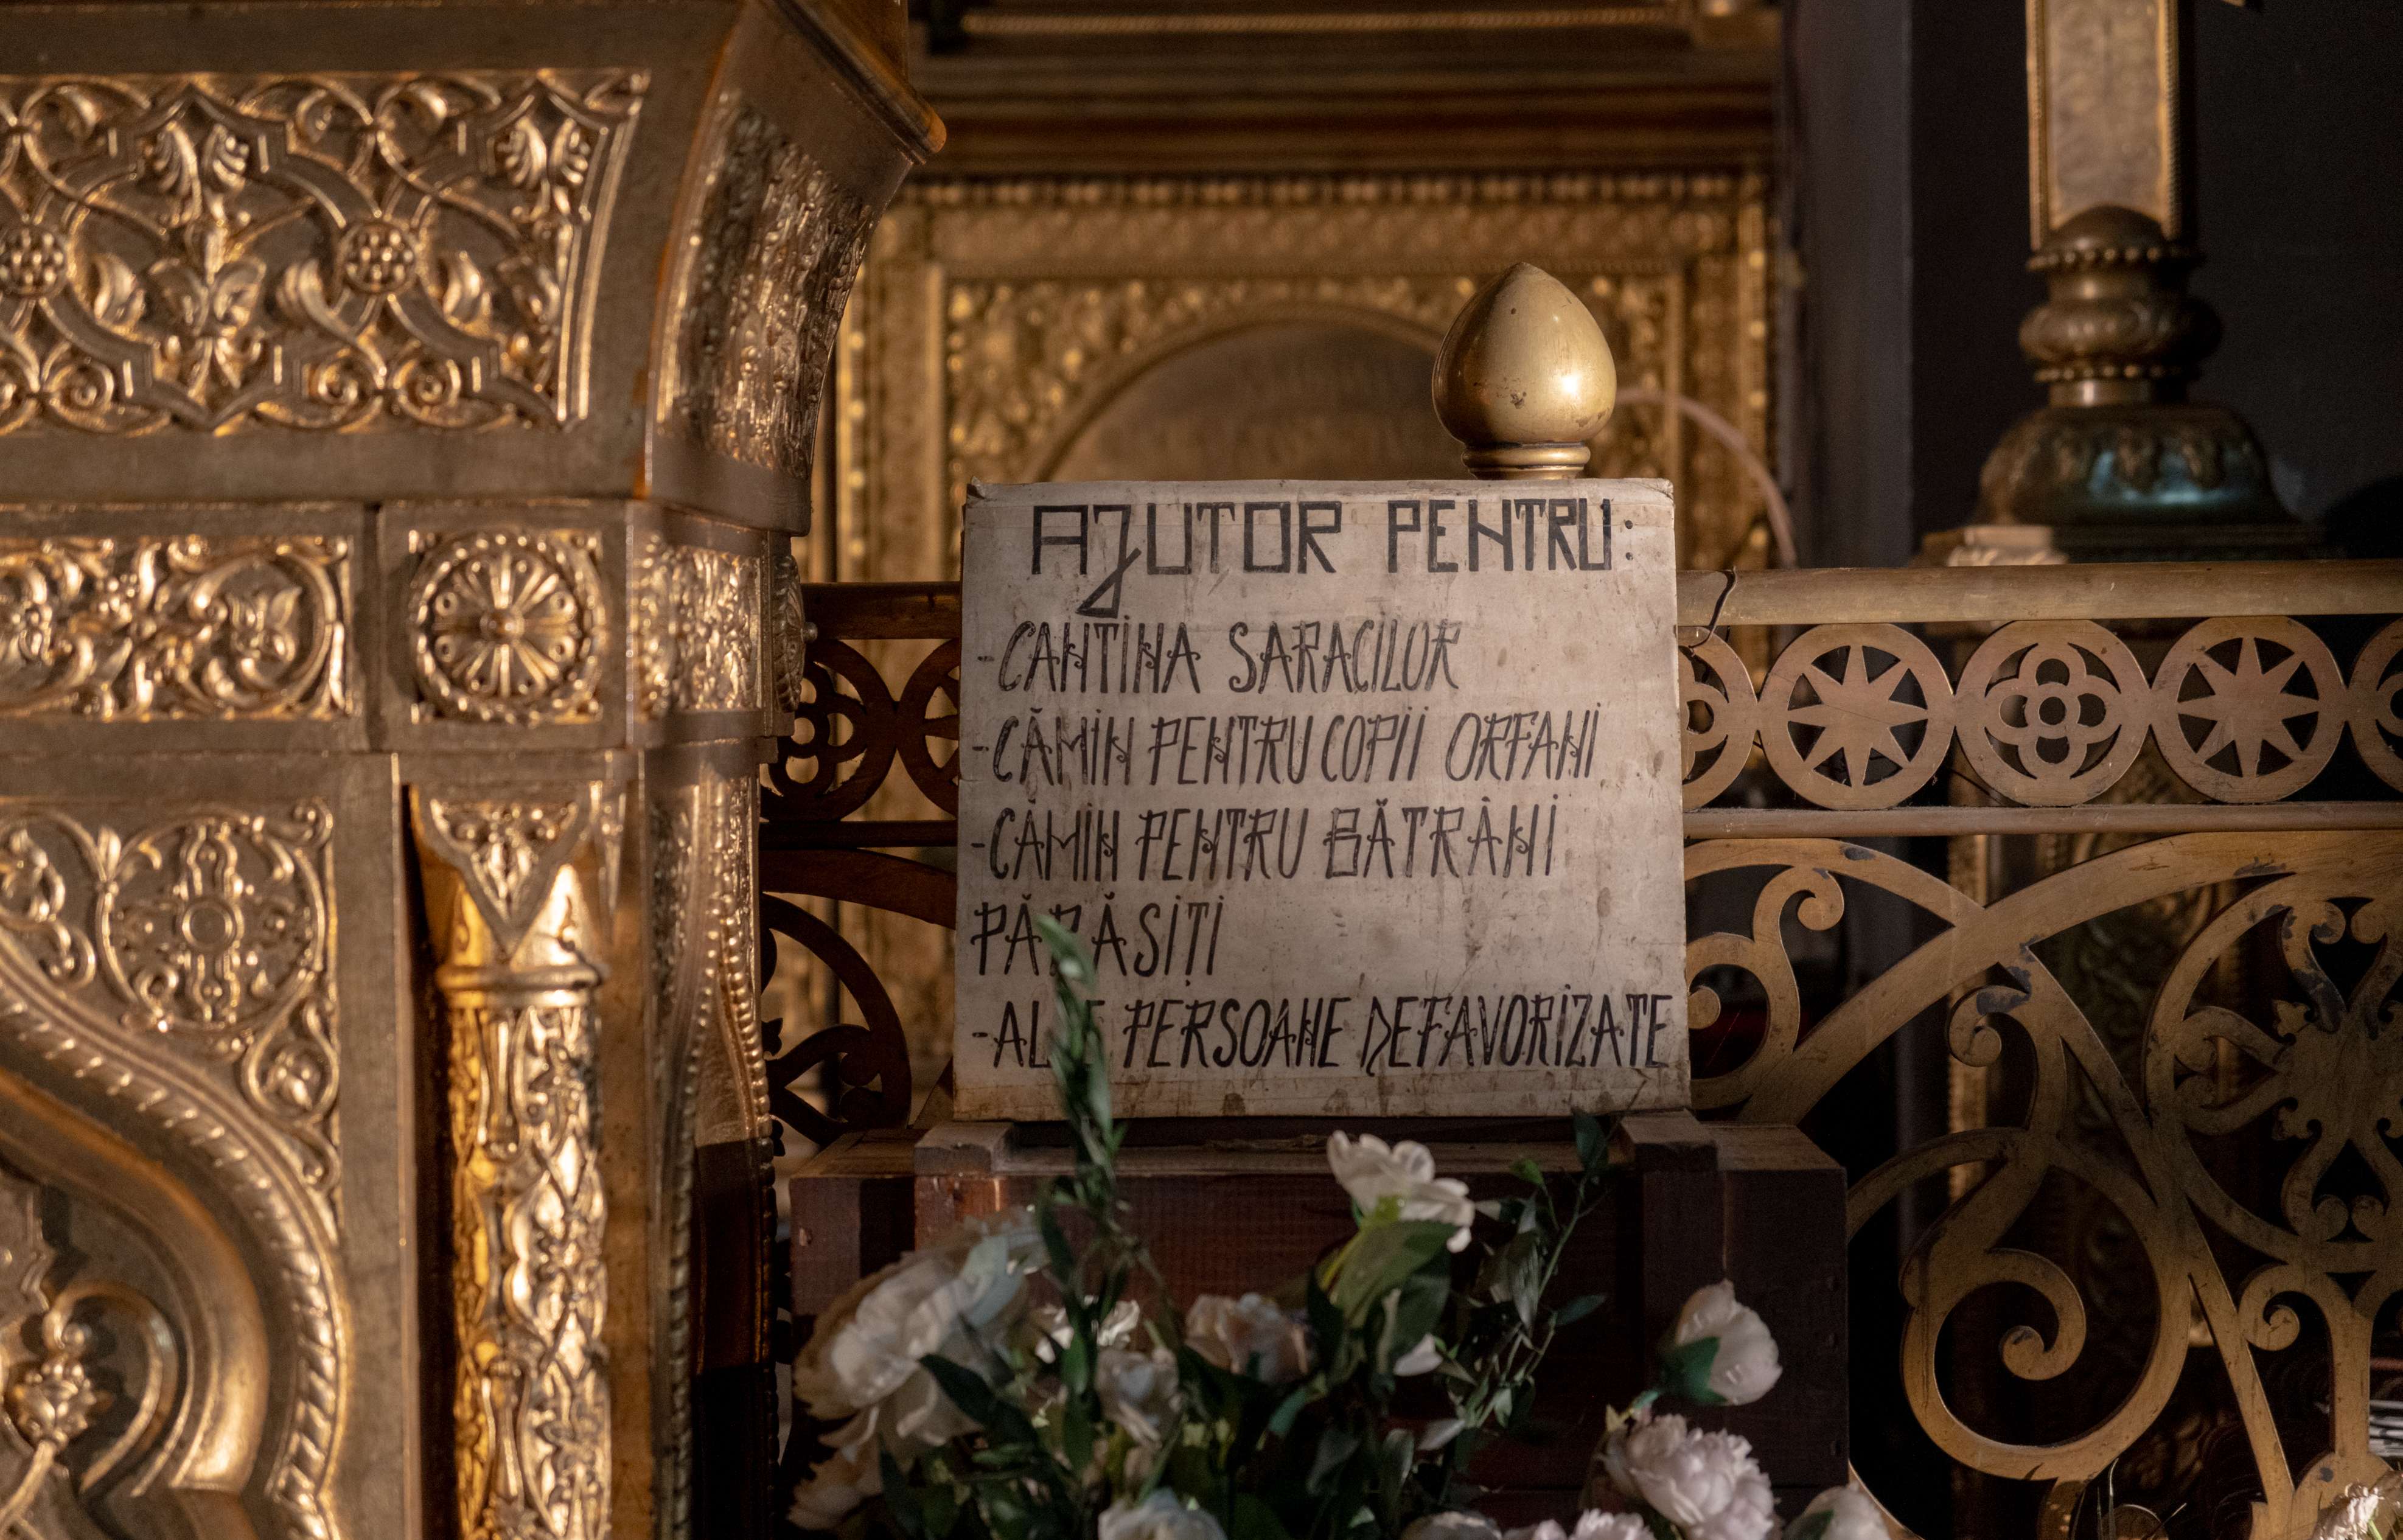 AJUTOR PENTRU:
-CANTINA SARACILOR
-CĂMIN PENTRU COPII ORFANI
-CĂMIN PENTRU BĂTRÂNI
PĂRĂSIȚI
-ALTE PERSOANE DEFAVORIZATE